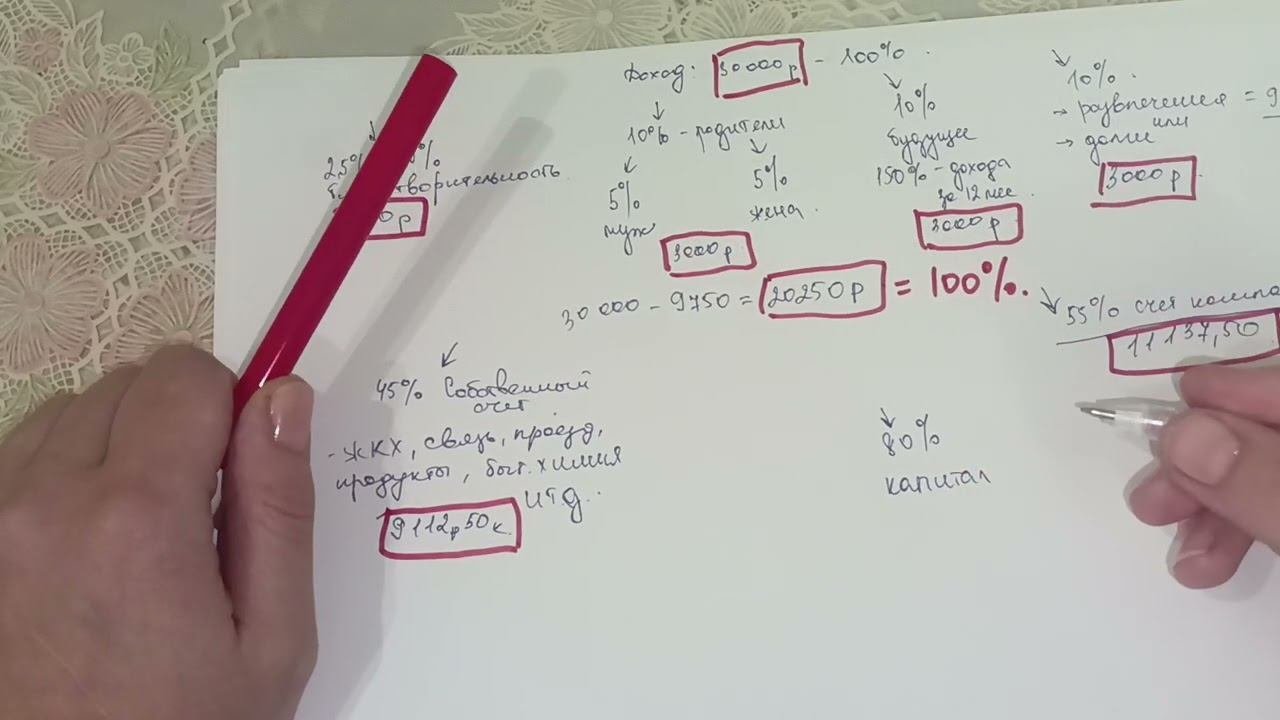 Доход: 30000р - 100%.
10% - родители
5%
муж
5%
жена.
3000р
10%
будущее
150% - дохода
за 12 мес.
3000р
10%.
→ развлечения = 9
или
→ долги
3000р.
25%
творительность.
0р
30000 - 9750 = 20250р = 100%.
55% счет
11137,50
45% Собственный
счет
- ЖКХ, связь, проезд,
продукты, быт. химия
итд..
9112р50к.
80%
капитал